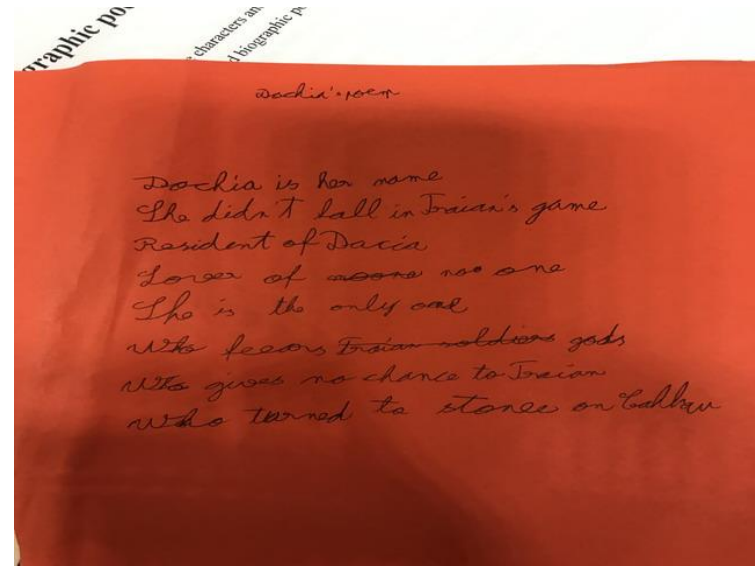 graphic po
e characters an
d biographic p
Dochia's poem
Dochia is her name
She didn't fall in Traian's game
Resident of Dacia
Lover of noone no one
She is the only one
Who feears Traian soldiers gods
Who gives no chance to Traian
Who turned to stones on